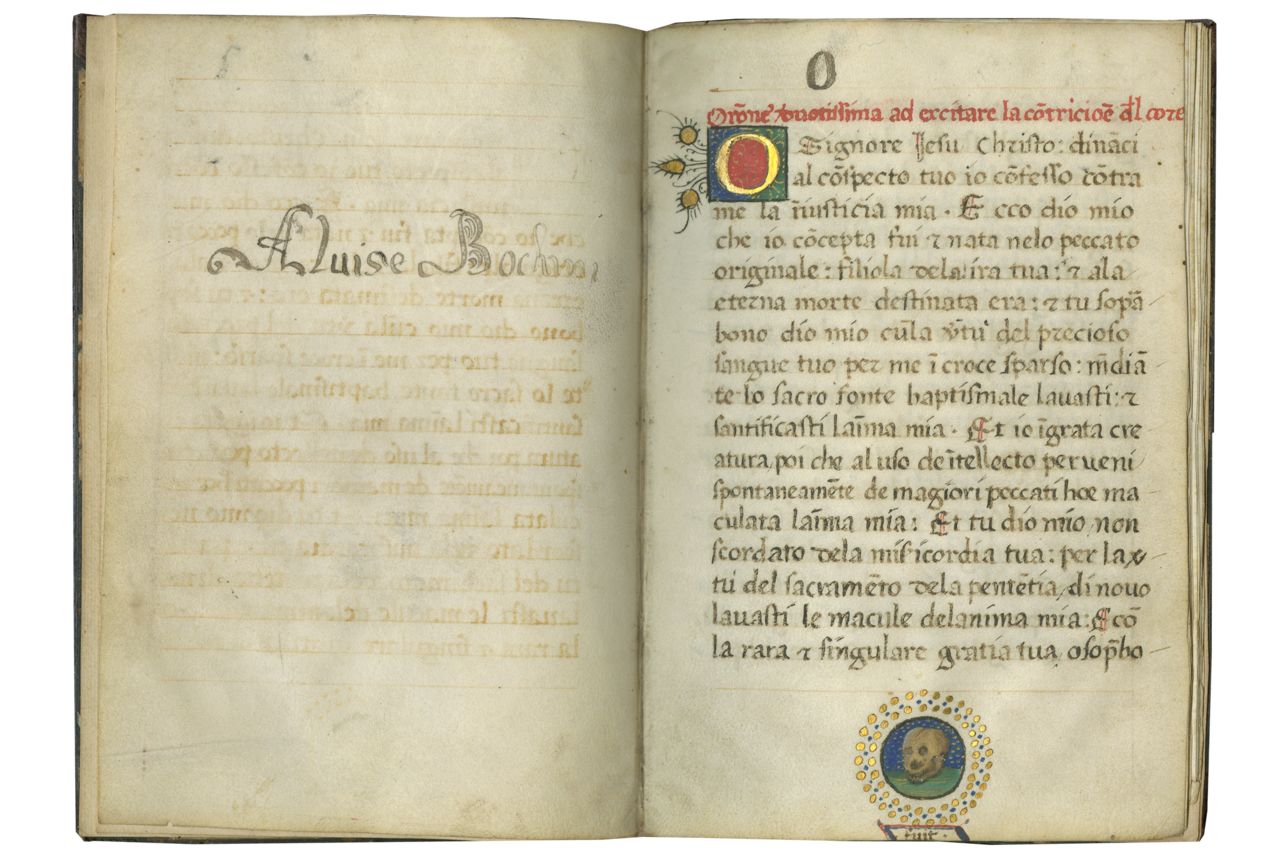 Aluise
O
Orōne deuotissima ad excitare la cōtricioē dl core
O Signore Jesu Christo: dināci
al cōspecto tuo io cōfesso cōtra
me la īiusticia mia. Ecco dio mio
che io cōcepta fui ⁊ nata nelo peccato
originale: filiola dela ira tua: ⁊ ala
eterna morte destinata era: ⁊ tu sopā
bono dio mio cūla v̄tu del precioso
sangue tuo per me ī croce sparso: m̄diā
te lo sacro fonte baptismale lauasti: ⁊
santificasti laīma mia. Et io īgrata cre
atura, poi che al uso de ītellecto perueni
spontaneamēte de magiori peccati hoe ma
culata laīma mia: Et tu dio mio non
scordato dela misericordia tua: per la x
tu del sacramēto dela penitētia, di nouo
lauasti le macule delanima mia: E cō
la rara ⁊ singulare gratia tua, o sop̄bo
fuit